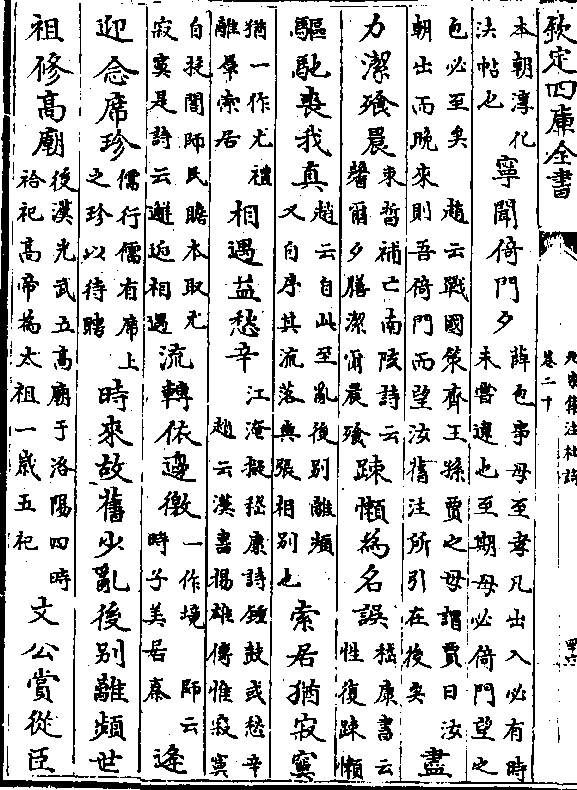 欽定四庫全書
九家集注杜詩
卷二十
四六
本朝淳化
法帖也
寧聞倚門夕
薛包事母至孝凡出入必有時
未嘗違也至期母必倚門望之
包必至矣 趙云戰國策齊王孫賈之母謂賈曰汝
朝出而晚來則吾倚門而望汝舊注所引在後矣
盡
力潔飱晨
束晳補亡南陔詩云
馨爾夕膳潔爾晨飱
疎懶為名誤
嵇康書云
性復疎懶
驅馳喪我真
趙云自此至亂後别離頻
又自序其流落與張相别也
索居猶寂寞
猶一作尤禮
離羣索居
相遇益愁辛
江淹擬嵇康詩鍾鼓或愁辛
趙云漢書揚雄傳惟寂寞
自投閣師民瞻本取尤
寂寞是詩云邂逅相遇
流轉依邊徼
一作境 師云
時子美居秦
逢
迎念席珍
儒行儒有席上
之珍以待聘
時來故舊少亂後别離頻世
祖修高廟
後漢光武立高廟于洛陽四時
祫祀高帝為太祖一歲五祀
文公賞從臣